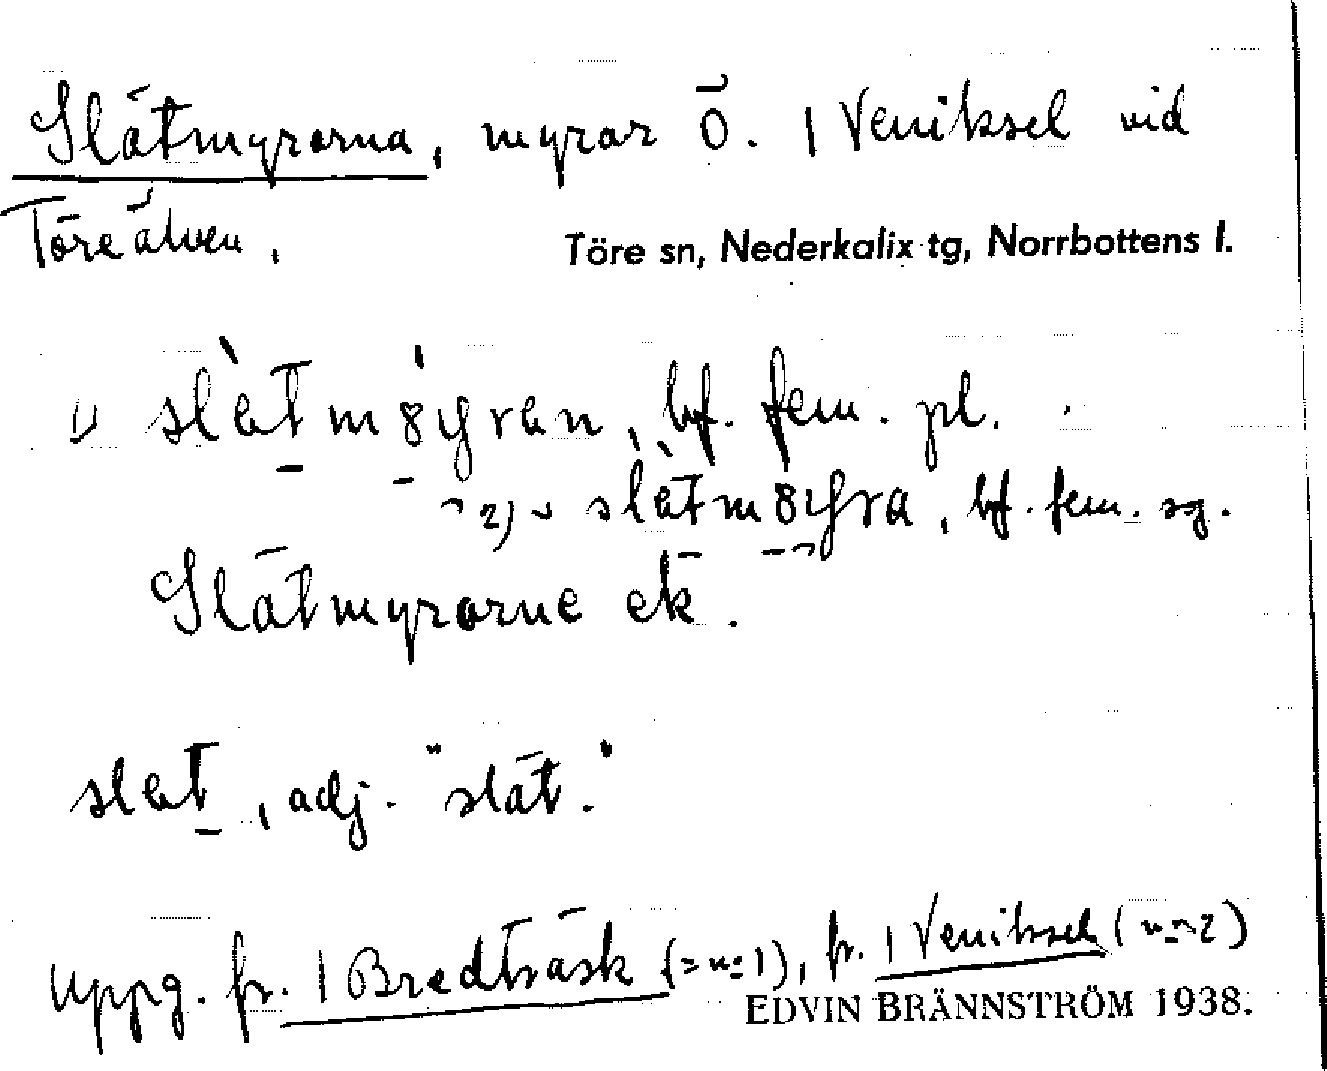 Slätmyrorna, myrar Ö. | Veniksel vid
Töreälven.
Töre sn, Nederkalix tg, Norrbottens l.
1) slätmöyran, bf. fem. pl.
2) slätmöyra, bf. fem. sg.
Slätmyrorne ek.
slät, adj. "slät."
Uppg. fr. | Bredträsk (= n:1), fr. | Veniksel (n:2)
EDVIN BRÄNNSTRÖM 1938.